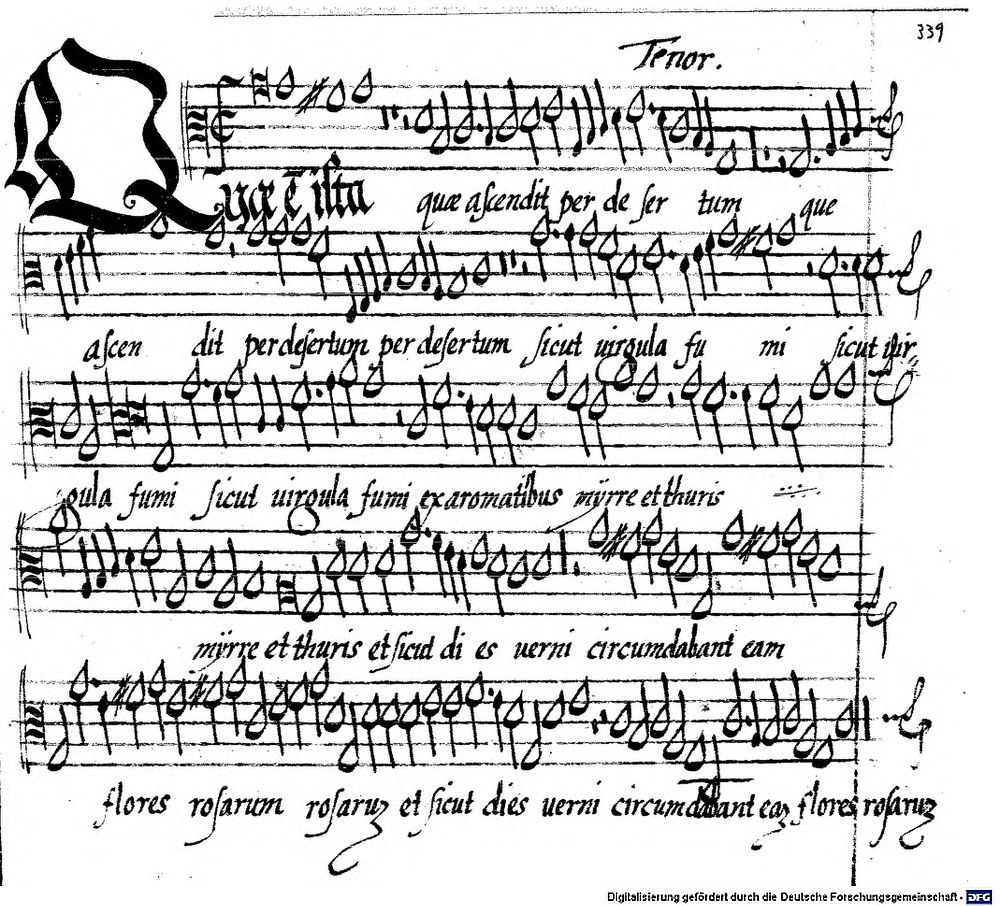 339
Tenor.
Quæ ē ista quæ ascendit per deser tum que
ascen dit per desertum per desertum sicut uirgula fu mi sicut uir
gula fumi sicut uirgula fumi ex aromatibus mÿrre et thuris
mÿrre et thuris et sicut di es uerni circumdabant eam
flores rosarum rosaruz et sicut dies uerni circumdabant eaz flores rosaruz
Digitalisierung gefördert durch die Deutsche Forschungsgemeinschaft - DFG